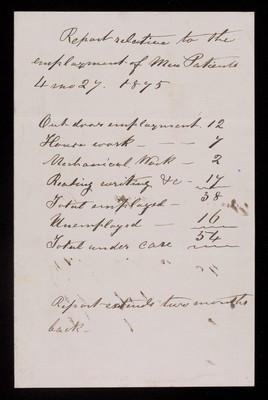 Report relative to the
employment of Men Patients
4 mo 27. 1875
Out door employment. 12
House work - - - 7
Mechanical Work - 2
Reading writing &c - 17
Total employed - 38
Unemployed - 16
Total under care 54
Report extends two months
back -